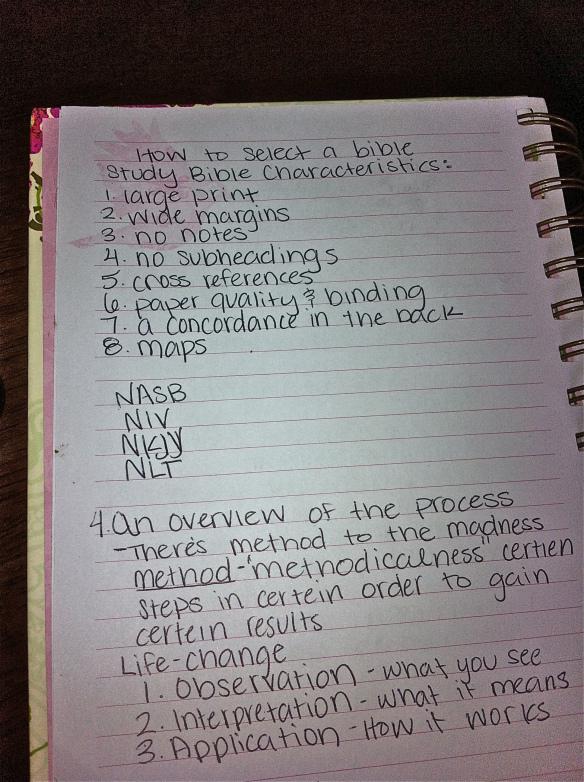 How to select a bible
Study Bible Characteristics:
1. large print
2. wide margins
3. no notes
4. no subheadings
5. cross references
6. paper quality & binding
7. a concordance in the back
8. maps
NASB
NIV
NKJV
NLT
4. An overview of the process
-There's method to the madness
method-"methodicalness" certien
steps in certein order to gain
certein results
Life-change
1. Observation - what you see
2. Interpretation - what it means
3. Application - How it works